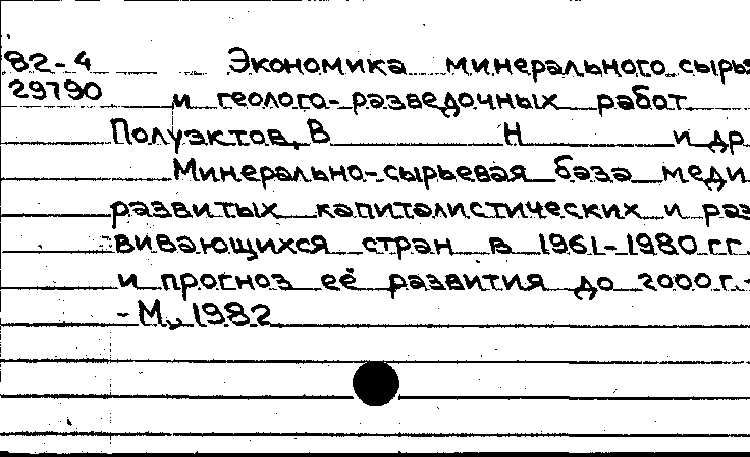 82-4 Экономика минерального сырья
29790 и геолого-разведочных работ
Полуэктов, В Н и др
Минерально-сырьевая база меди
развитых капиталистических и раз
вивающихся стран в 1961-1980 гг.
и прогноз её развития до 2000 г.-
- М., 1982